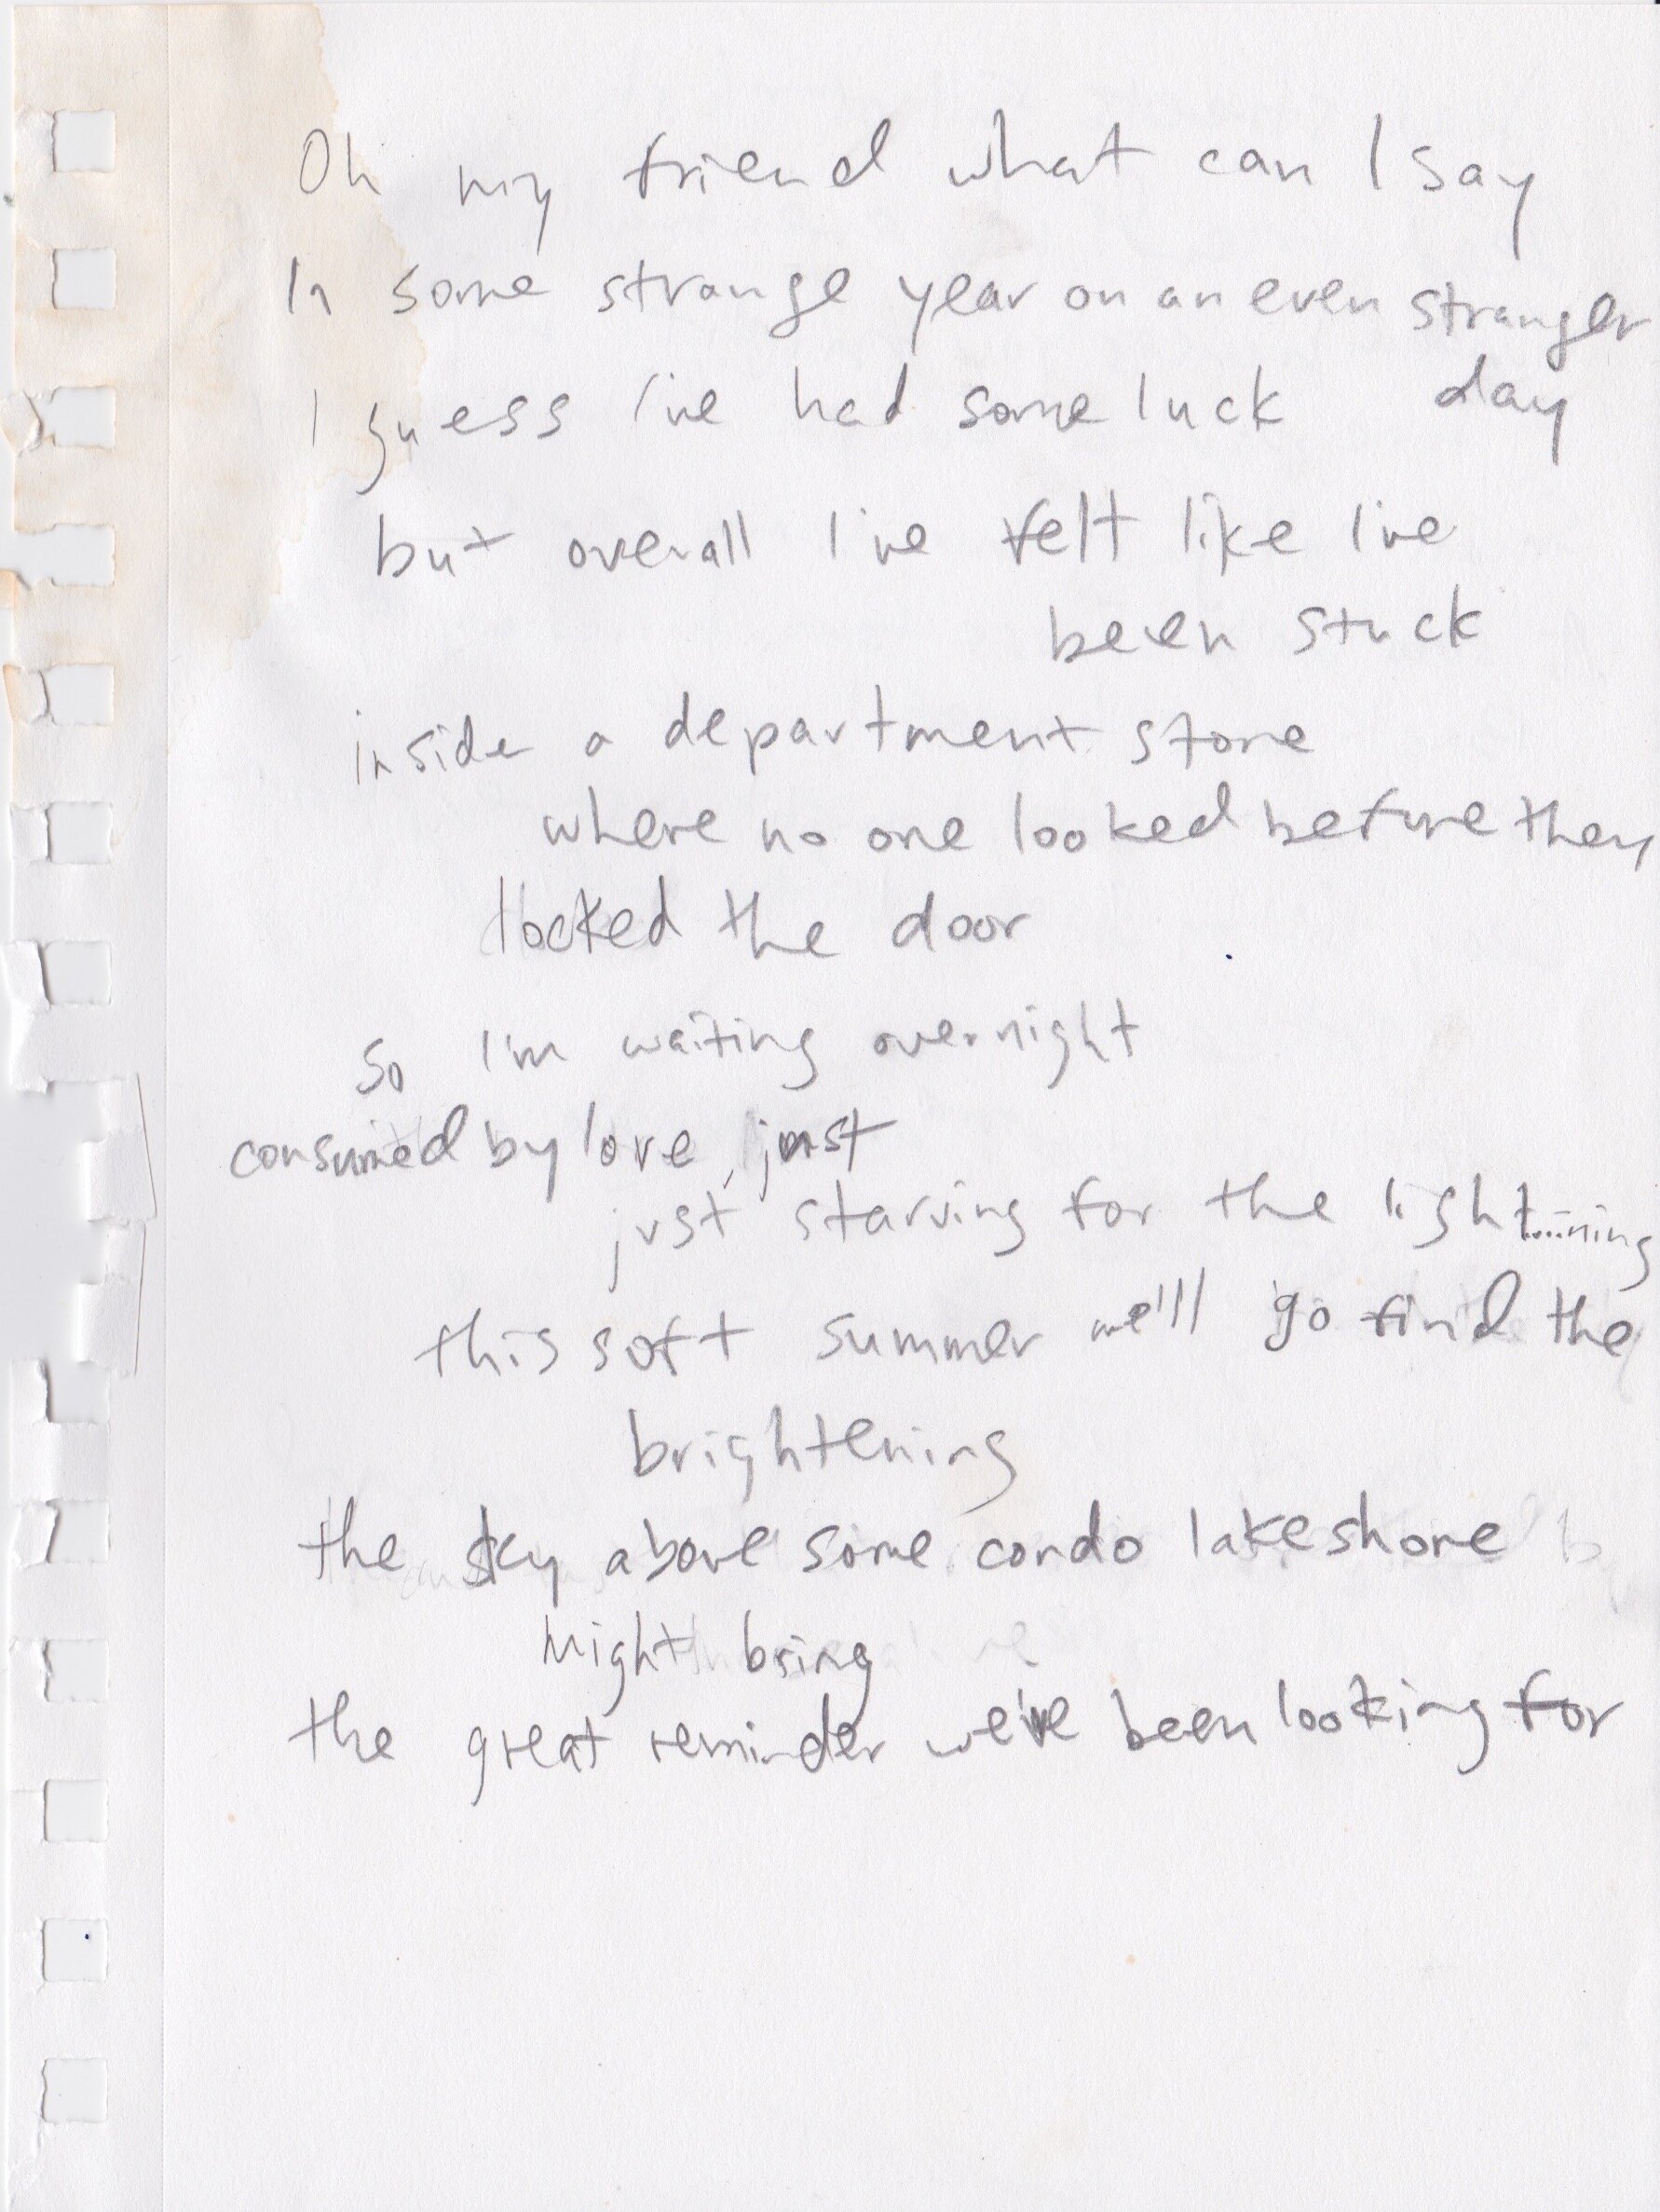 Oh my friend what can I say
In some strange year on an even stranger
day
I guess I've had some luck
but overall I've felt like I've
been stuck
inside a department store
where no one looked before they
locked the door
so I'm waiting overnight
consumed by love, just
just starving for the lightning
this soft summer we'll go find the
brightening
the sky above some condo lakeshore
might bring
the great reminder we've been looking for